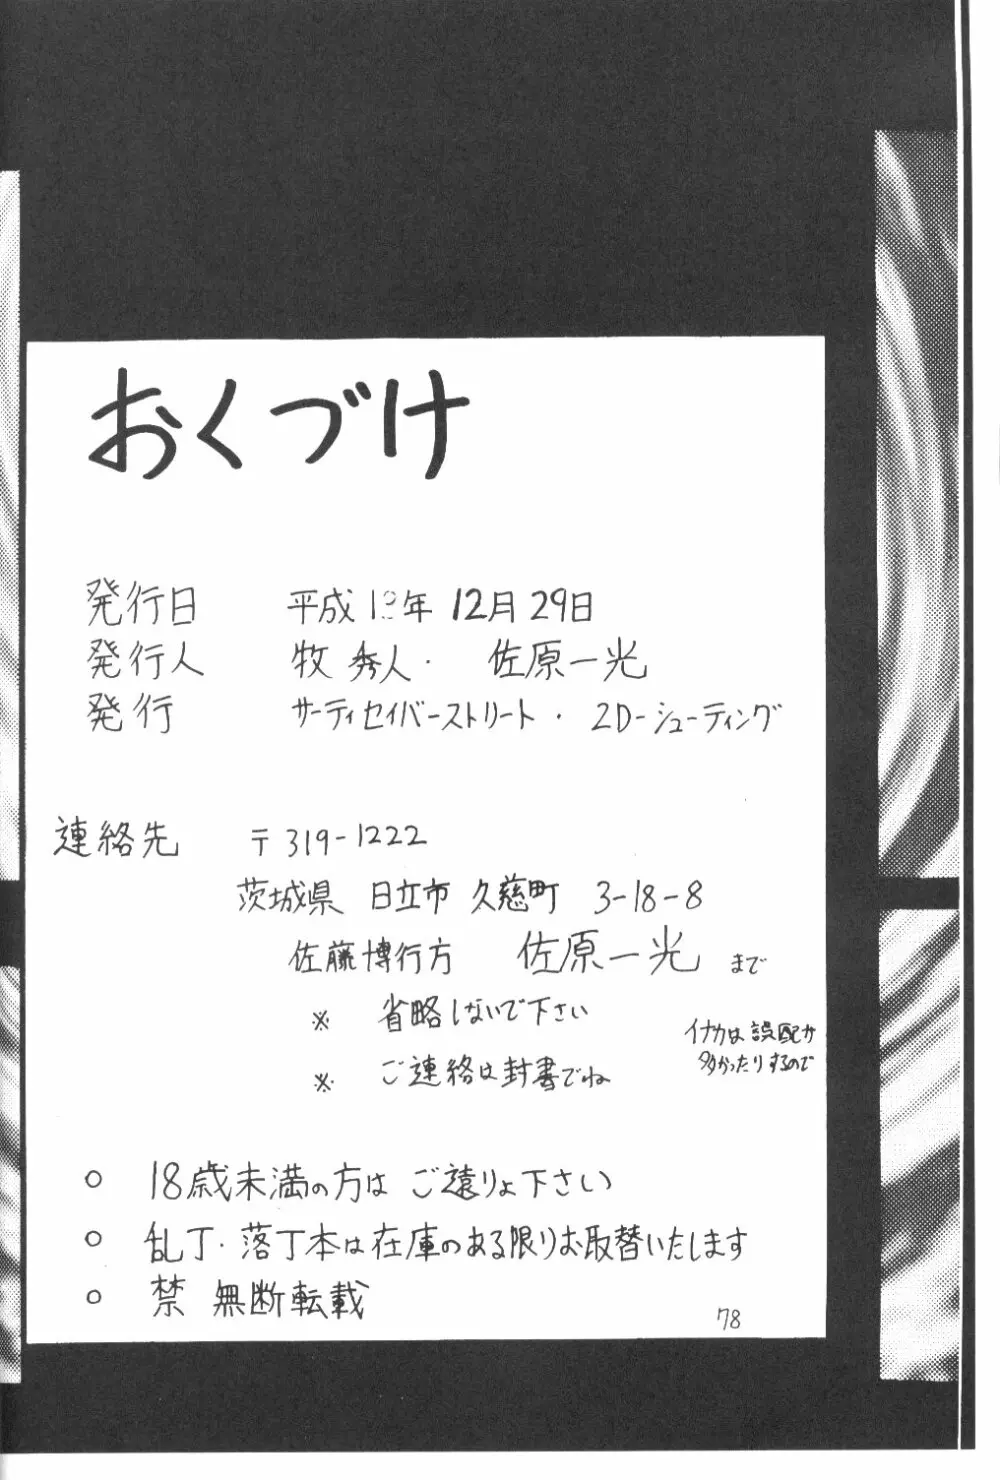 おくづけ
発行日 平成13年 12月29日
発行人 牧 秀人・ 佐原一光
発行 サーティセイバーストリート・2D-シューティング
連絡先 〒319-1222
茨城県 日立市 久慈町 3-18-8
佐藤博行方 佐原一光 まで
※ 省略しないで下さい
イナカは誤配が
多かったりするので
※ ご連絡は封書でね
○ 18歳未満の方は ご遠りょ下さい
○ 乱丁・落丁本は在庫のある限りお取替いたします
○ 禁 無断転載
78